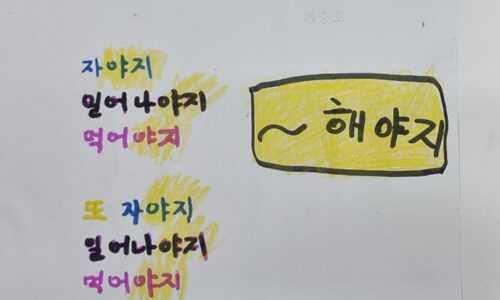 최승호
자야지
일어나야지
먹어야지
또 자야지
일어나야지
먹어야지
~해야지